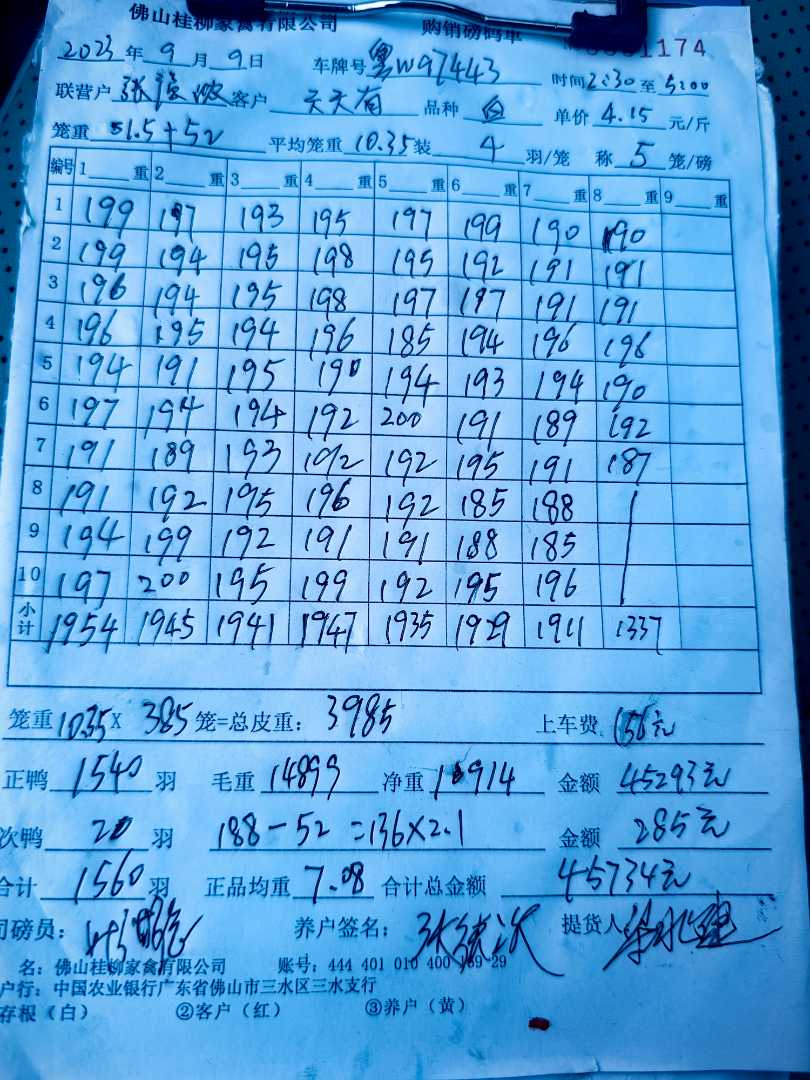 佛山桂柳家禽有限公司 购销磅码单 1174
2023年9月9日 车牌号粤W97443 时间2:30至5:00
联营户 张 客户 天天有 品种 白 单价 4.15 元/斤
笼重 51.5+52 平均笼重10.35装 4 羽/笼 称 5 笼/磅
编号 1 重 2 重 3 重 4 重 5 重 6 重 7 重 8 重 9 重
1 199 197 193 195 197 199 190 190
2 199 194 195 198 195 192 191 191
3 196 194 195 198 197 197 191 191
4 196 195 194 196 185 194 196 196
5 194 191 195 190 194 193 194 190
6 197 194 194 192 200 191 189 192
7 191 189 193 192 192 195 191 187
8 191 192 195 196 192 185 188
9 194 199 192 191 191 188 185
10 197 200 195 199 192 195 196
小计 1954 1945 1941 1947 1935 1929 1911 1337
笼重10.35X 385笼=总皮重: 3985 上车费 156元
正鸭 1540 羽 毛重 14899 净重 10914 金额 45293元
次鸭 20 羽 188-52=136×2.1 金额 285元
合计 1560 羽 正品均重 7.08 合计总金额 45734元
司磅员: 养户签名: 张 提货人
名: 佛山桂柳家禽有限公司 账号: 444 401 010 400 189 29
户行: 中国农业银行广东省佛山市三水区三水支行
存根(白) ②客户(红) ③养户(黄)